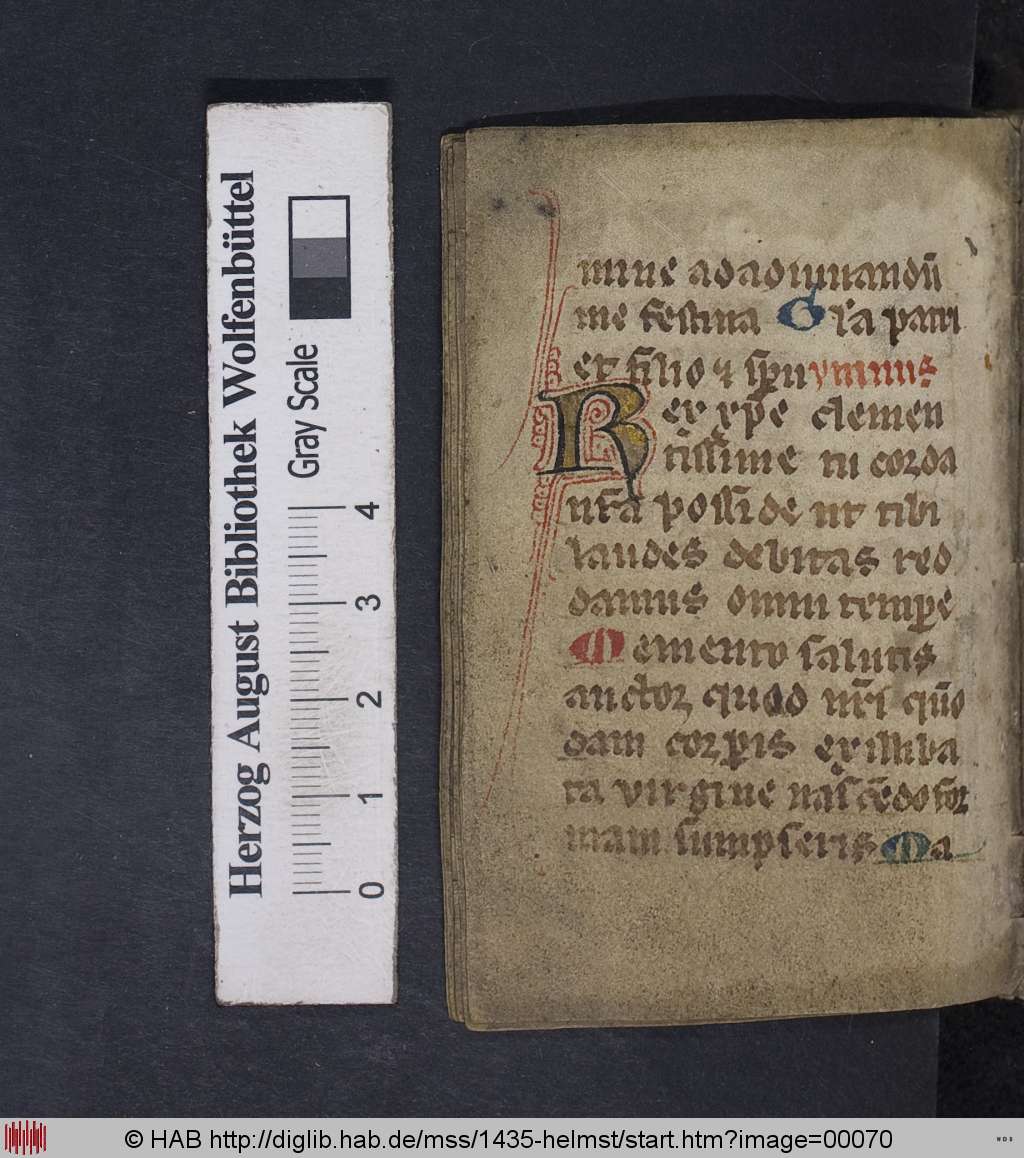 Herzog August Bibliothek Wolfenbüttel
Gray Scale
0 1 2 3 4
mine ad adiuuandū
me festina Gl'a patri
et filio ⁊ sp̄u ymnus
Rex xp̄e clemen
tissime tu corda
nr̄a posside ut tibi
laudes debitas red
damus omni tempe
Memento salutis
auctor quod nr̄i qūo
dam corꝑis ex illiba
ta virgine nascēdo for
mam sumpseris Ma
© HAB http://diglib.hab.de/mss/1435-helmst/start.htm?image=00070